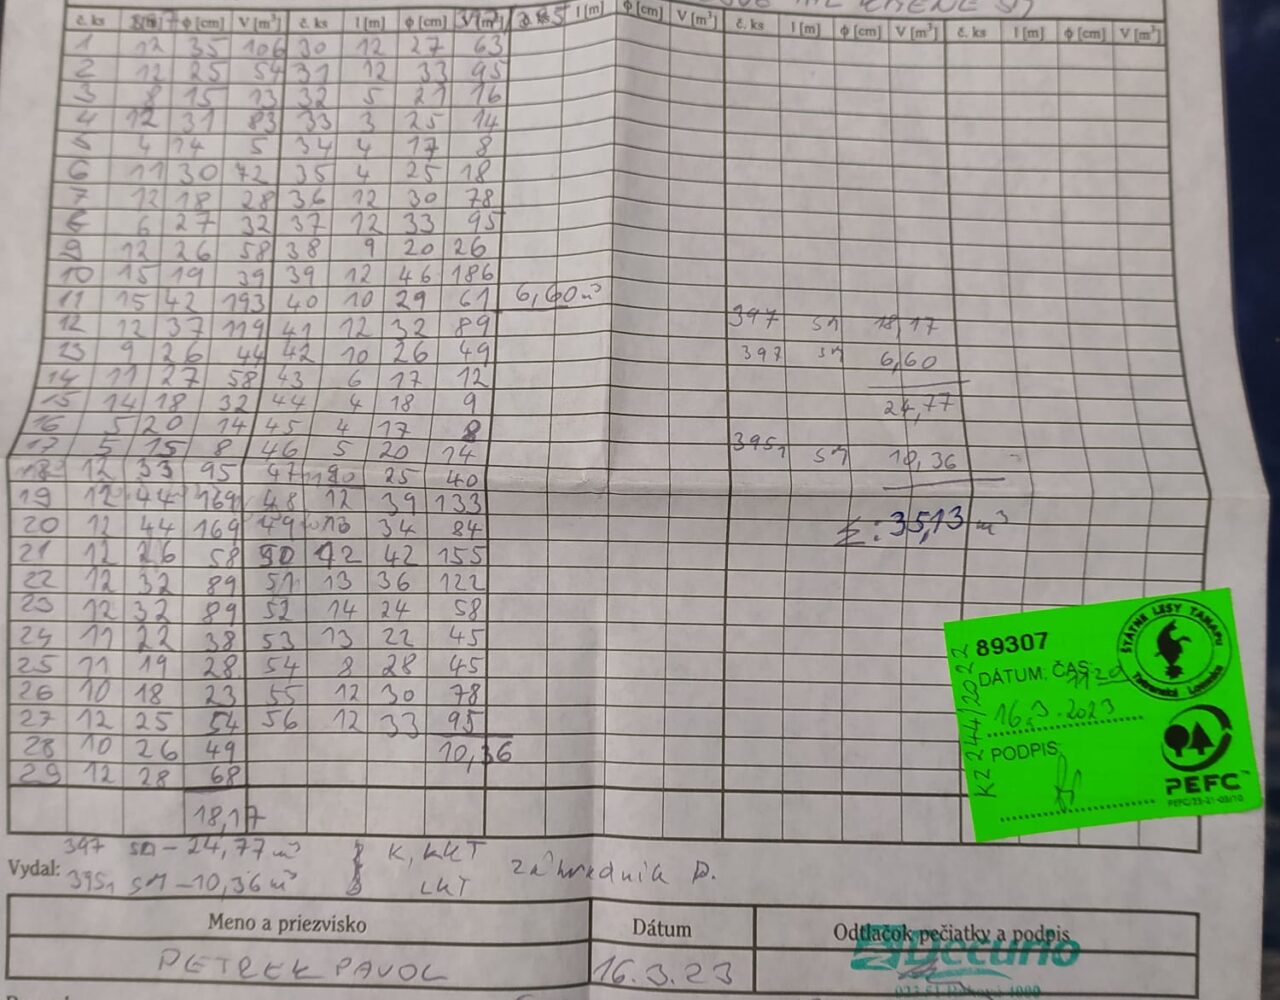 č. ks l [m] ϕ [cm] V [m³] č. ks l [m] ϕ [cm] V [m³] č. ks l [m] ϕ [cm] V [m³] č. ks l [m] ϕ [cm] V [m³] č. ks l [m] ϕ [cm] V [m³]
1 12 35 106 30 12 27 63
2 12 25 54 31 12 33 95
3 8 15 13 32 5 21 16
4 12 31 83 33 3 25 14
5 4 14 5 34 4 17 8
6 11 30 72 35 4 25 18
7 12 18 28 36 12 30 78
8 6 27 32 37 12 33 95
9 12 26 58 38 9 20 26
10 15 19 39 39 12 46 186
11 15 42 193 40 10 29 61 6,60 m³
12 12 37 119 41 12 32 89 397 sm 18,17
13 9 26 44 42 10 26 49 397 sm 6,60
14 11 27 58 43 6 17 12
15 14 18 32 44 4 18 9 24,77
16 5 20 14 45 4 17 8
17 5 15 8 46 5 20 14 395₁ sm 10,36
18 12 33 95 47 25 40
19 12 44 169 48 12 39 133
20 12 44 169 49 34 84 Σ: 35,13 m³
21 12 26 58 50 12 42 155
22 12 32 89 51 13 36 122
23 12 32 89 52 14 24 58
24 11 22 38 53 13 22 45
25 11 19 28 54 8 28 45
26 10 18 23 55 12 30 78
27 12 25 54 56 12 33 95
28 10 26 49 10,36
29 12 28 68
18,17
89307
DÁTUM, ČAS 11 20
16.3.2023
PODPIS
KZ 244/2022
ŠTÁTNE LESY TANAPU
Tatranská Lomnica
PEFC
PEFC/23-21-03/10
397 sm - 24,77 m³ K, KKT
Vydal: 395₁ sm - 10,36 m³ LKT záhradník P.
Meno a priezvisko Dátum Odtlačok pečiatky a podpis
PETREK PAVOL 16.3.23